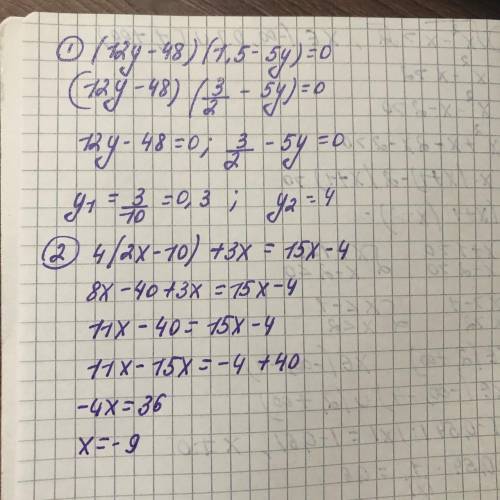 ① (12y-48)(1,5-5y)=0
(12y-48)(3/2-5y)=0
12y-48=0; 3/2-5y=0
y₁=3/10=0,3; y₂=4
② 4(2x-10)+3x=15x-4
8x-40+3x=15x-4
11x-40=15x-4
11x-15x=-4+40
-4x=36
x=-9